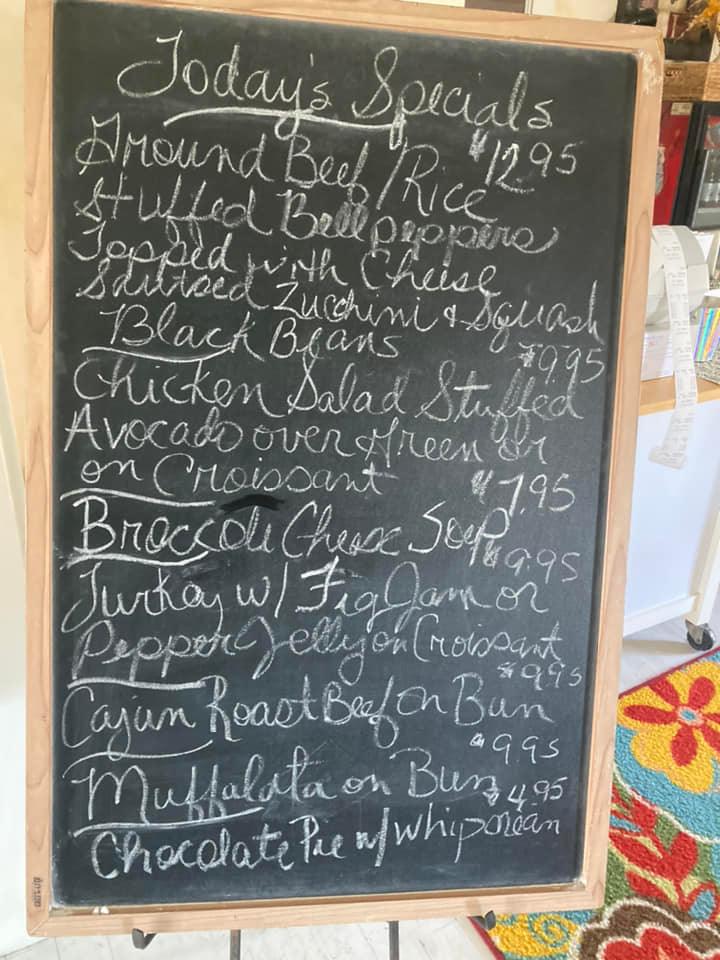 Today's Specials
Ground Beef/Rice $12.95
Stuffed Bell peppers
Topped with Cheese
Sauteed Zucchini & Squash
Black Beans
$9.95
Chicken Salad Stuffed
Avocado over Green Or
on Croissant
$7.95
Broccoli Cheese Soup
$9.95
Turkey w/ Fig Jam or
Pepper Jelly on Croissant
$9.95
Cajun Roast Beef on Bun
$9.95
Muffalata on Bun
$4.95
Chocolate Pie w/ whipcream